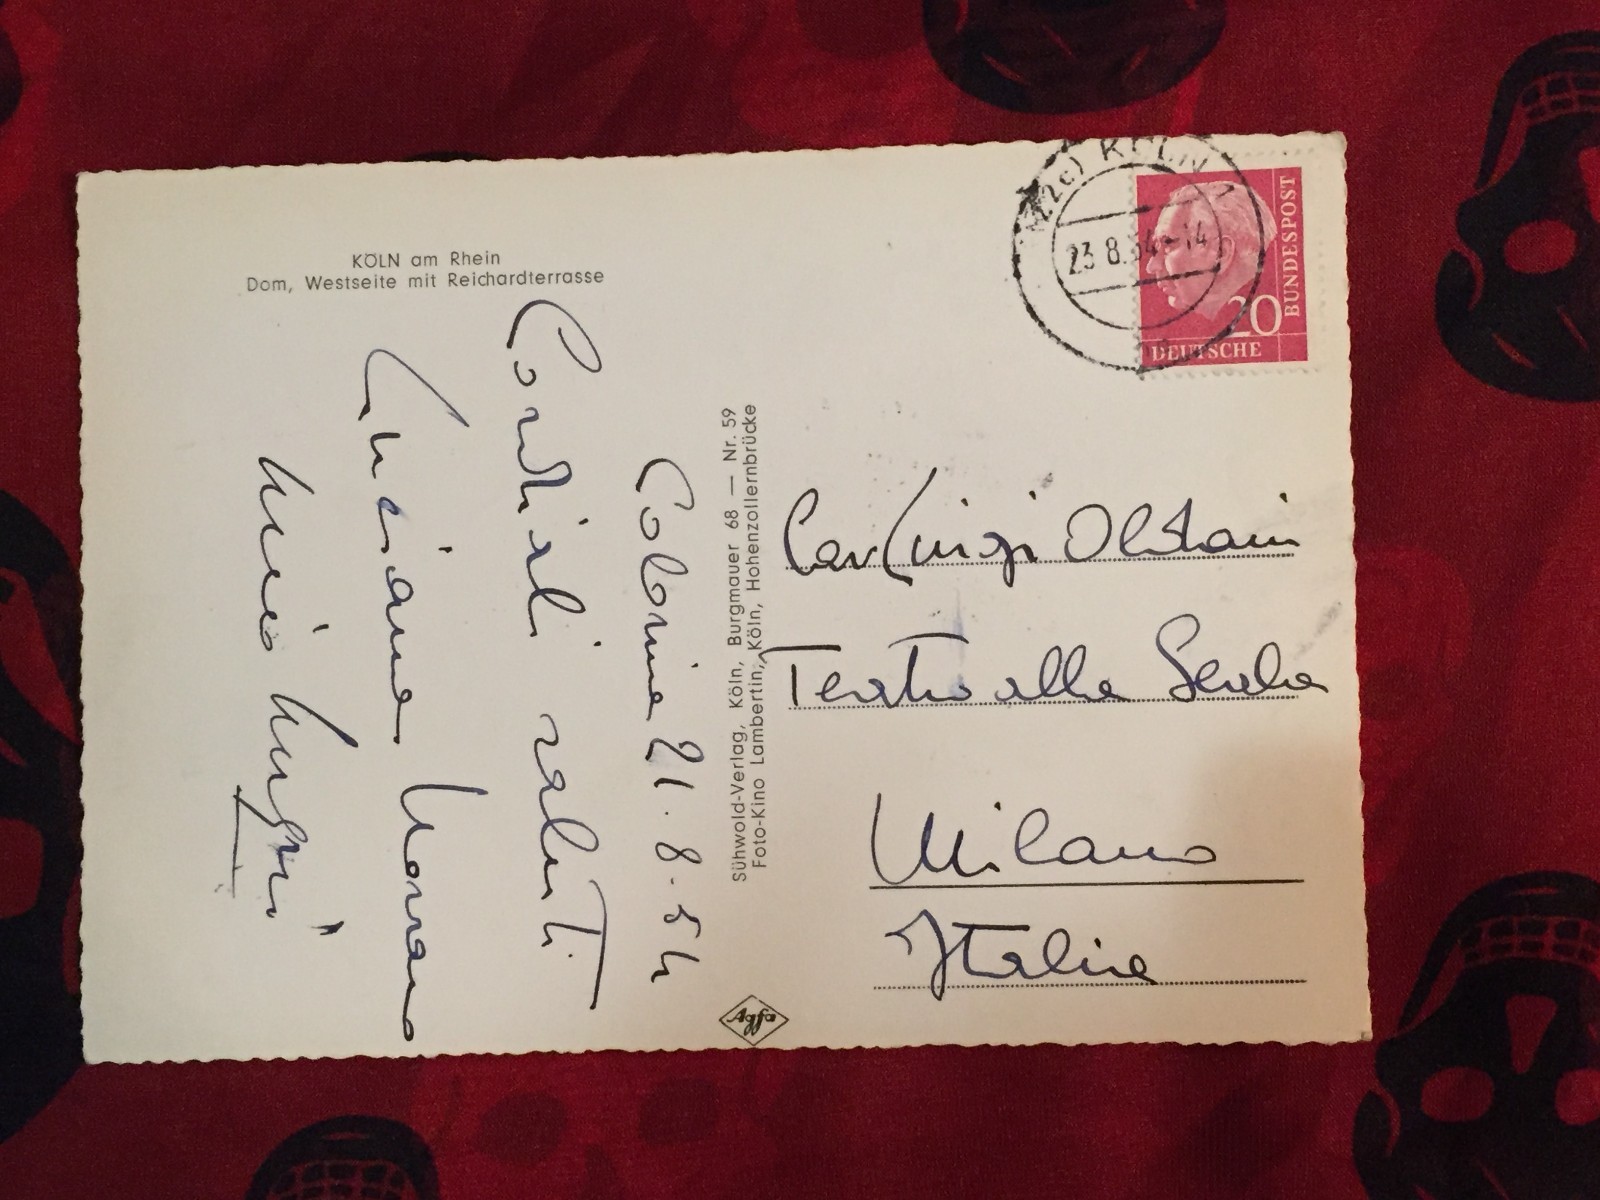 KÖLN am Rhein
Dom, Westseite mit Reichardterrasse
Colonia 21.8.54
Cordiali saluti
Luciana Novaro
Sühwold-Verlag, Köln, Burgmauer 68 — Nr. 59
Foto-Kino Lambertin, Köln, Hohenzollernbrücke
Agfa
(22c) KÖLN 1
23.8.54-14
20
DEUTSCHE
BUNDESPOST
Carluigi
Teatro alla Scala
Milano
Italia